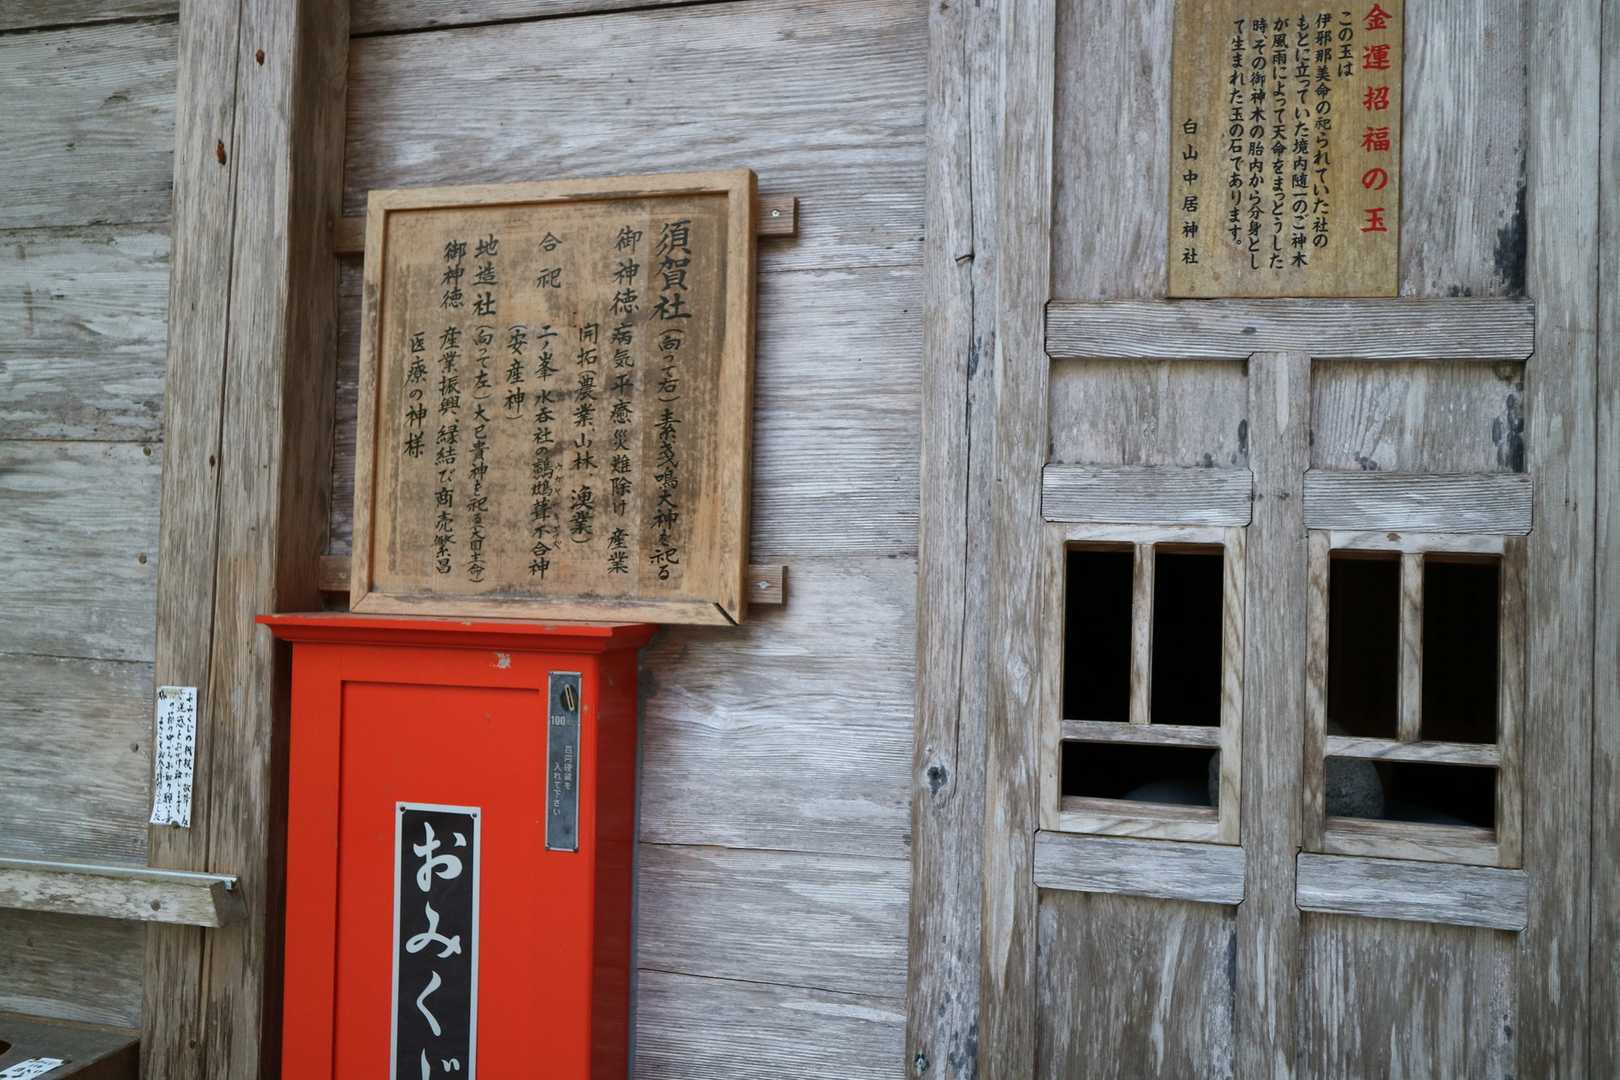 金運招福の玉
この玉は
伊邪那美命の祀られていた社の
もとに立っていた境内随一のご神木
が風雨によって天命をまっとうした
時、その御神木の胎内から分身とし
て生まれた玉の石であります。
白山中居神社
須賀社(向って右)素戔鳴大神を祀る
御神徳 病気平癒 災難除け 産業
開拓(農業、山林、漁業)
合祀 二ノ峯 水呑社の鸕鶿葺不合神
(安産神)
地造社(向って左)大巳貴神を祀る(大国主命)
御神徳 産業振興、縁結び、商売繁昌
医療の神様
100
百円硬貨を
入れて下さい
おみくじ